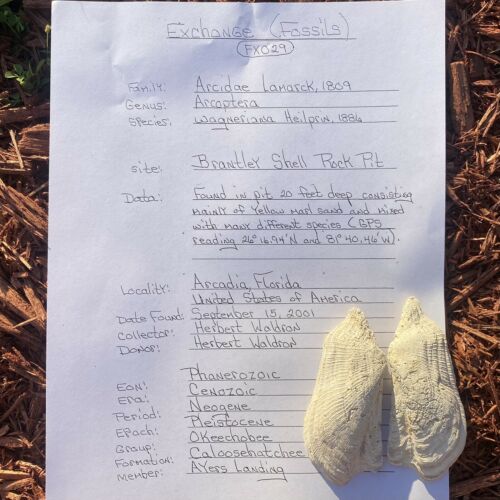 Exchange (Fossils)
FX029
Family: Arcidae Lamarck, 1809
Genus: Arcoptera
Species: wagneriana Heilprin, 1886
Site: Brantley Shell Rock Pit
Data: Found in pit 20 feet deep consisting
mainly of Yellow marl sand and mixed
with many different species (GPS
reading 26° 16.94'N and 81° 40.46'W).
Locality: Arcadia, Florida
United States of America
Date Found: September 15, 2001
Collector: Herbert Waldron
Donor: Herbert Waldron
Eon: Phanerozoic
Era: Cenozoic
Period: Neogene
Epoch: Pleistocene
Group: Okeechobee
Formation: Caloosahatchee
Member: Ayers Landing